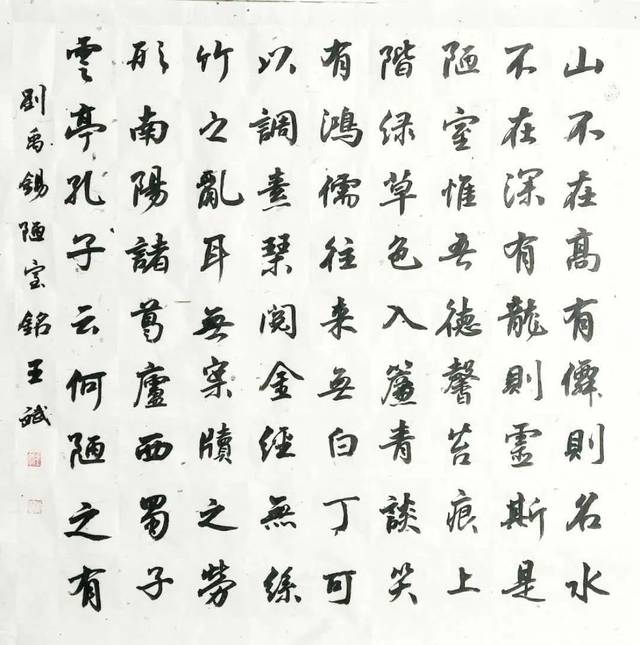 山不在高有僊則名水
不在深有龍則靈斯是
陋室惟吾德馨苔痕上
階绿草色入簾青談笑
有鴻儒往来無白丁可
以調素琴閲金經無絲
竹之亂耳無案牘之勞
形南陽諸葛廬西蜀子
雲亭孔子云何陋之有
劉禹錫陋室銘王斌